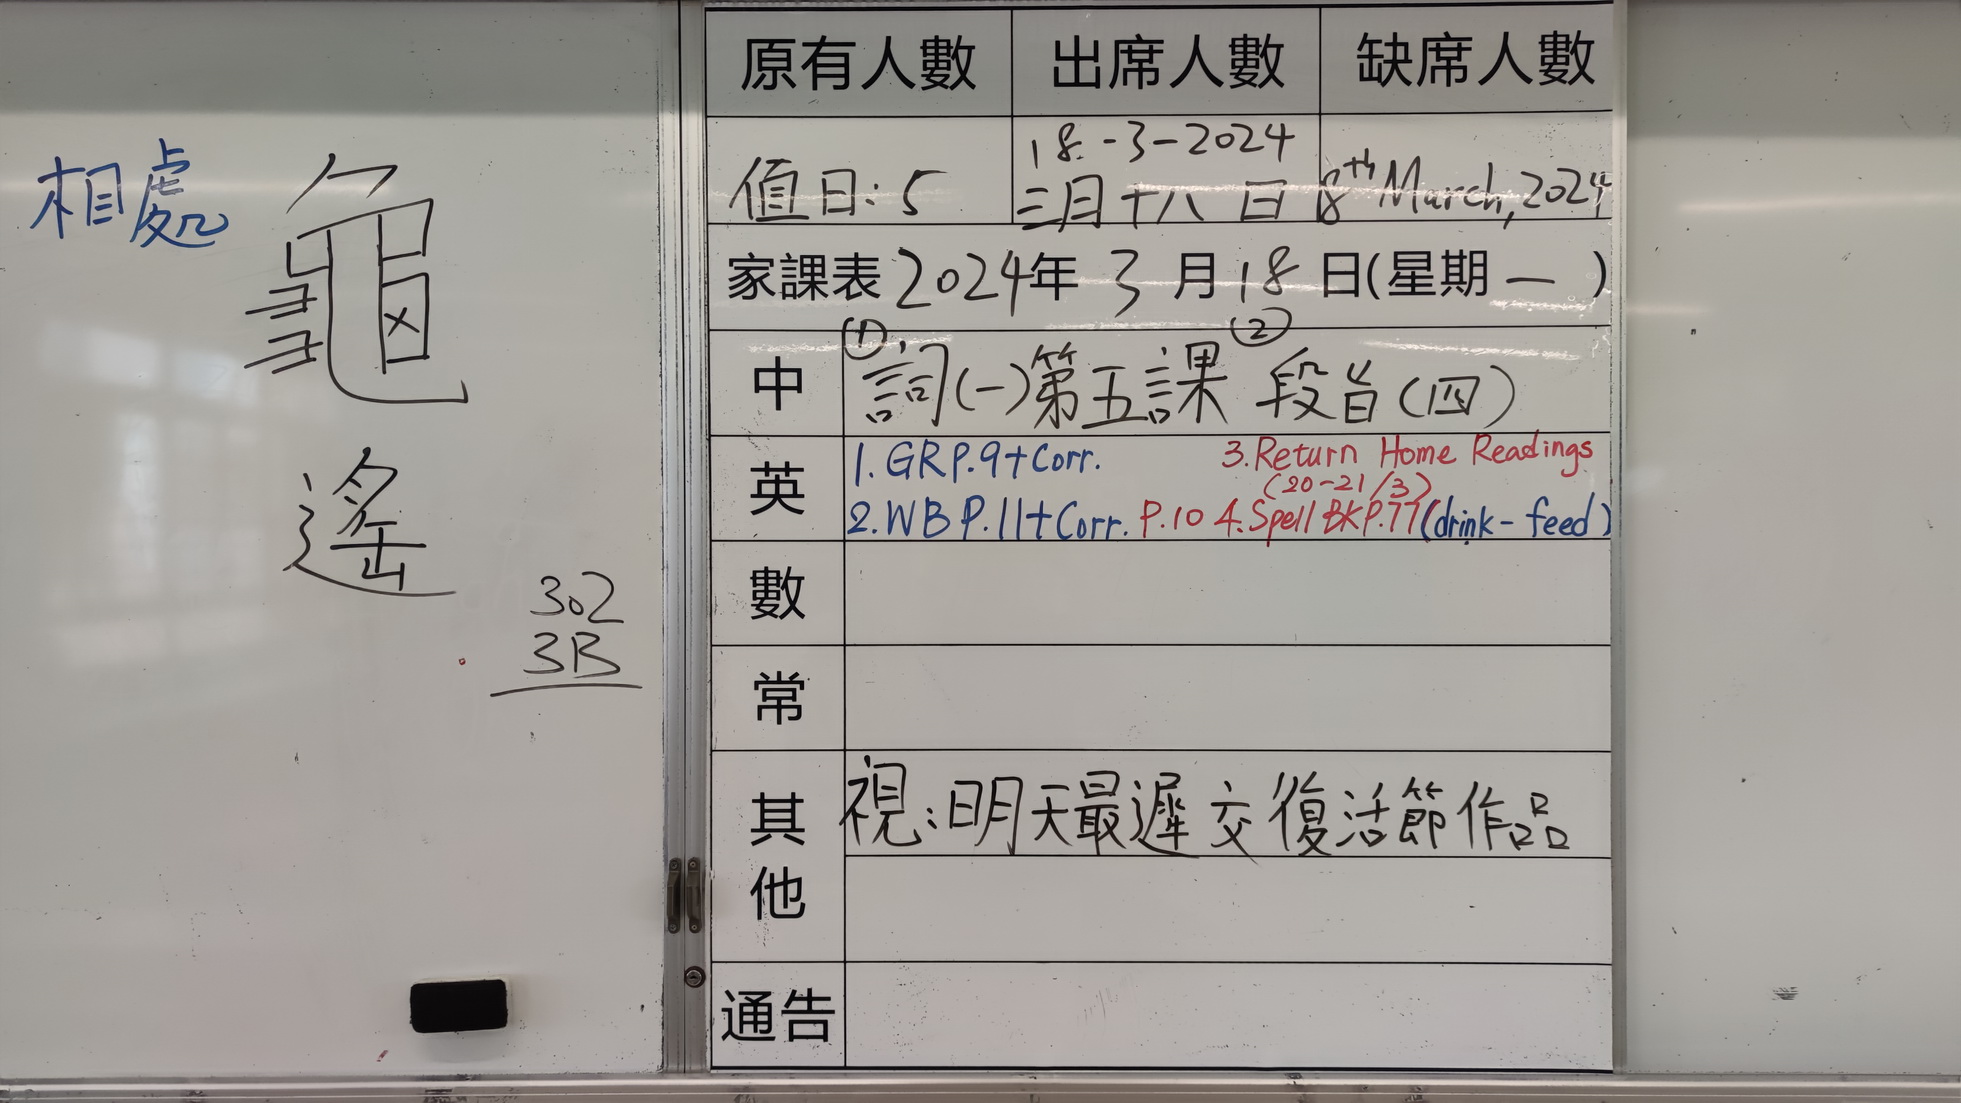 相處
龜
遙
302
3B
原有人數 出席人數 缺席人數
值日:5 18-3-2024 8th March, 2024
三月十八日
家課表2024年3月18日(星期一)
中 ①詞(一)第五課 ②段旨(四)
英 1.GRP.9+Corr. 3.Return Home Readings
(20-21/3)
2.WB P.11+Corr. P.10 4.Spell BK P.77(drink-feed)
數
常
其他 視:明天最遲交復活節作品
通告